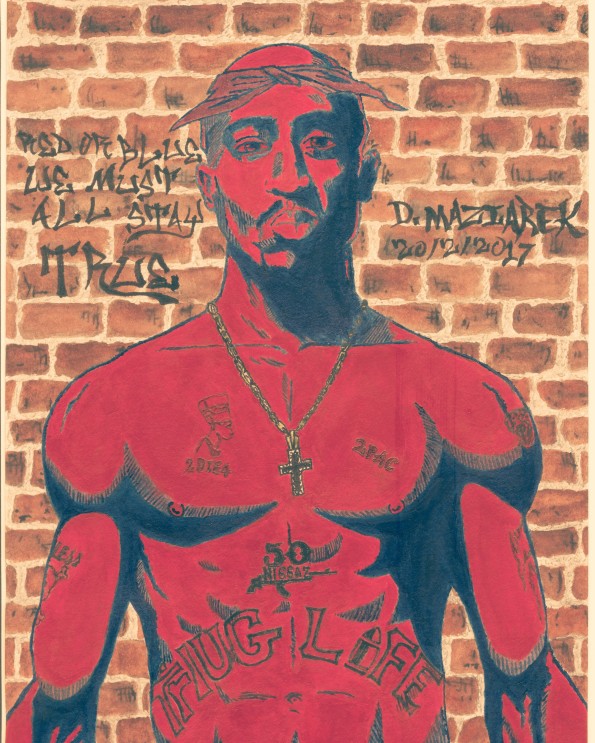 RED OR BLUE
WE MUST
ALL STAY
TRUE
D. MAZIAREK
20/2/2017
2DIE4
2PAC
50
NIGGAZ
THUG LIFE